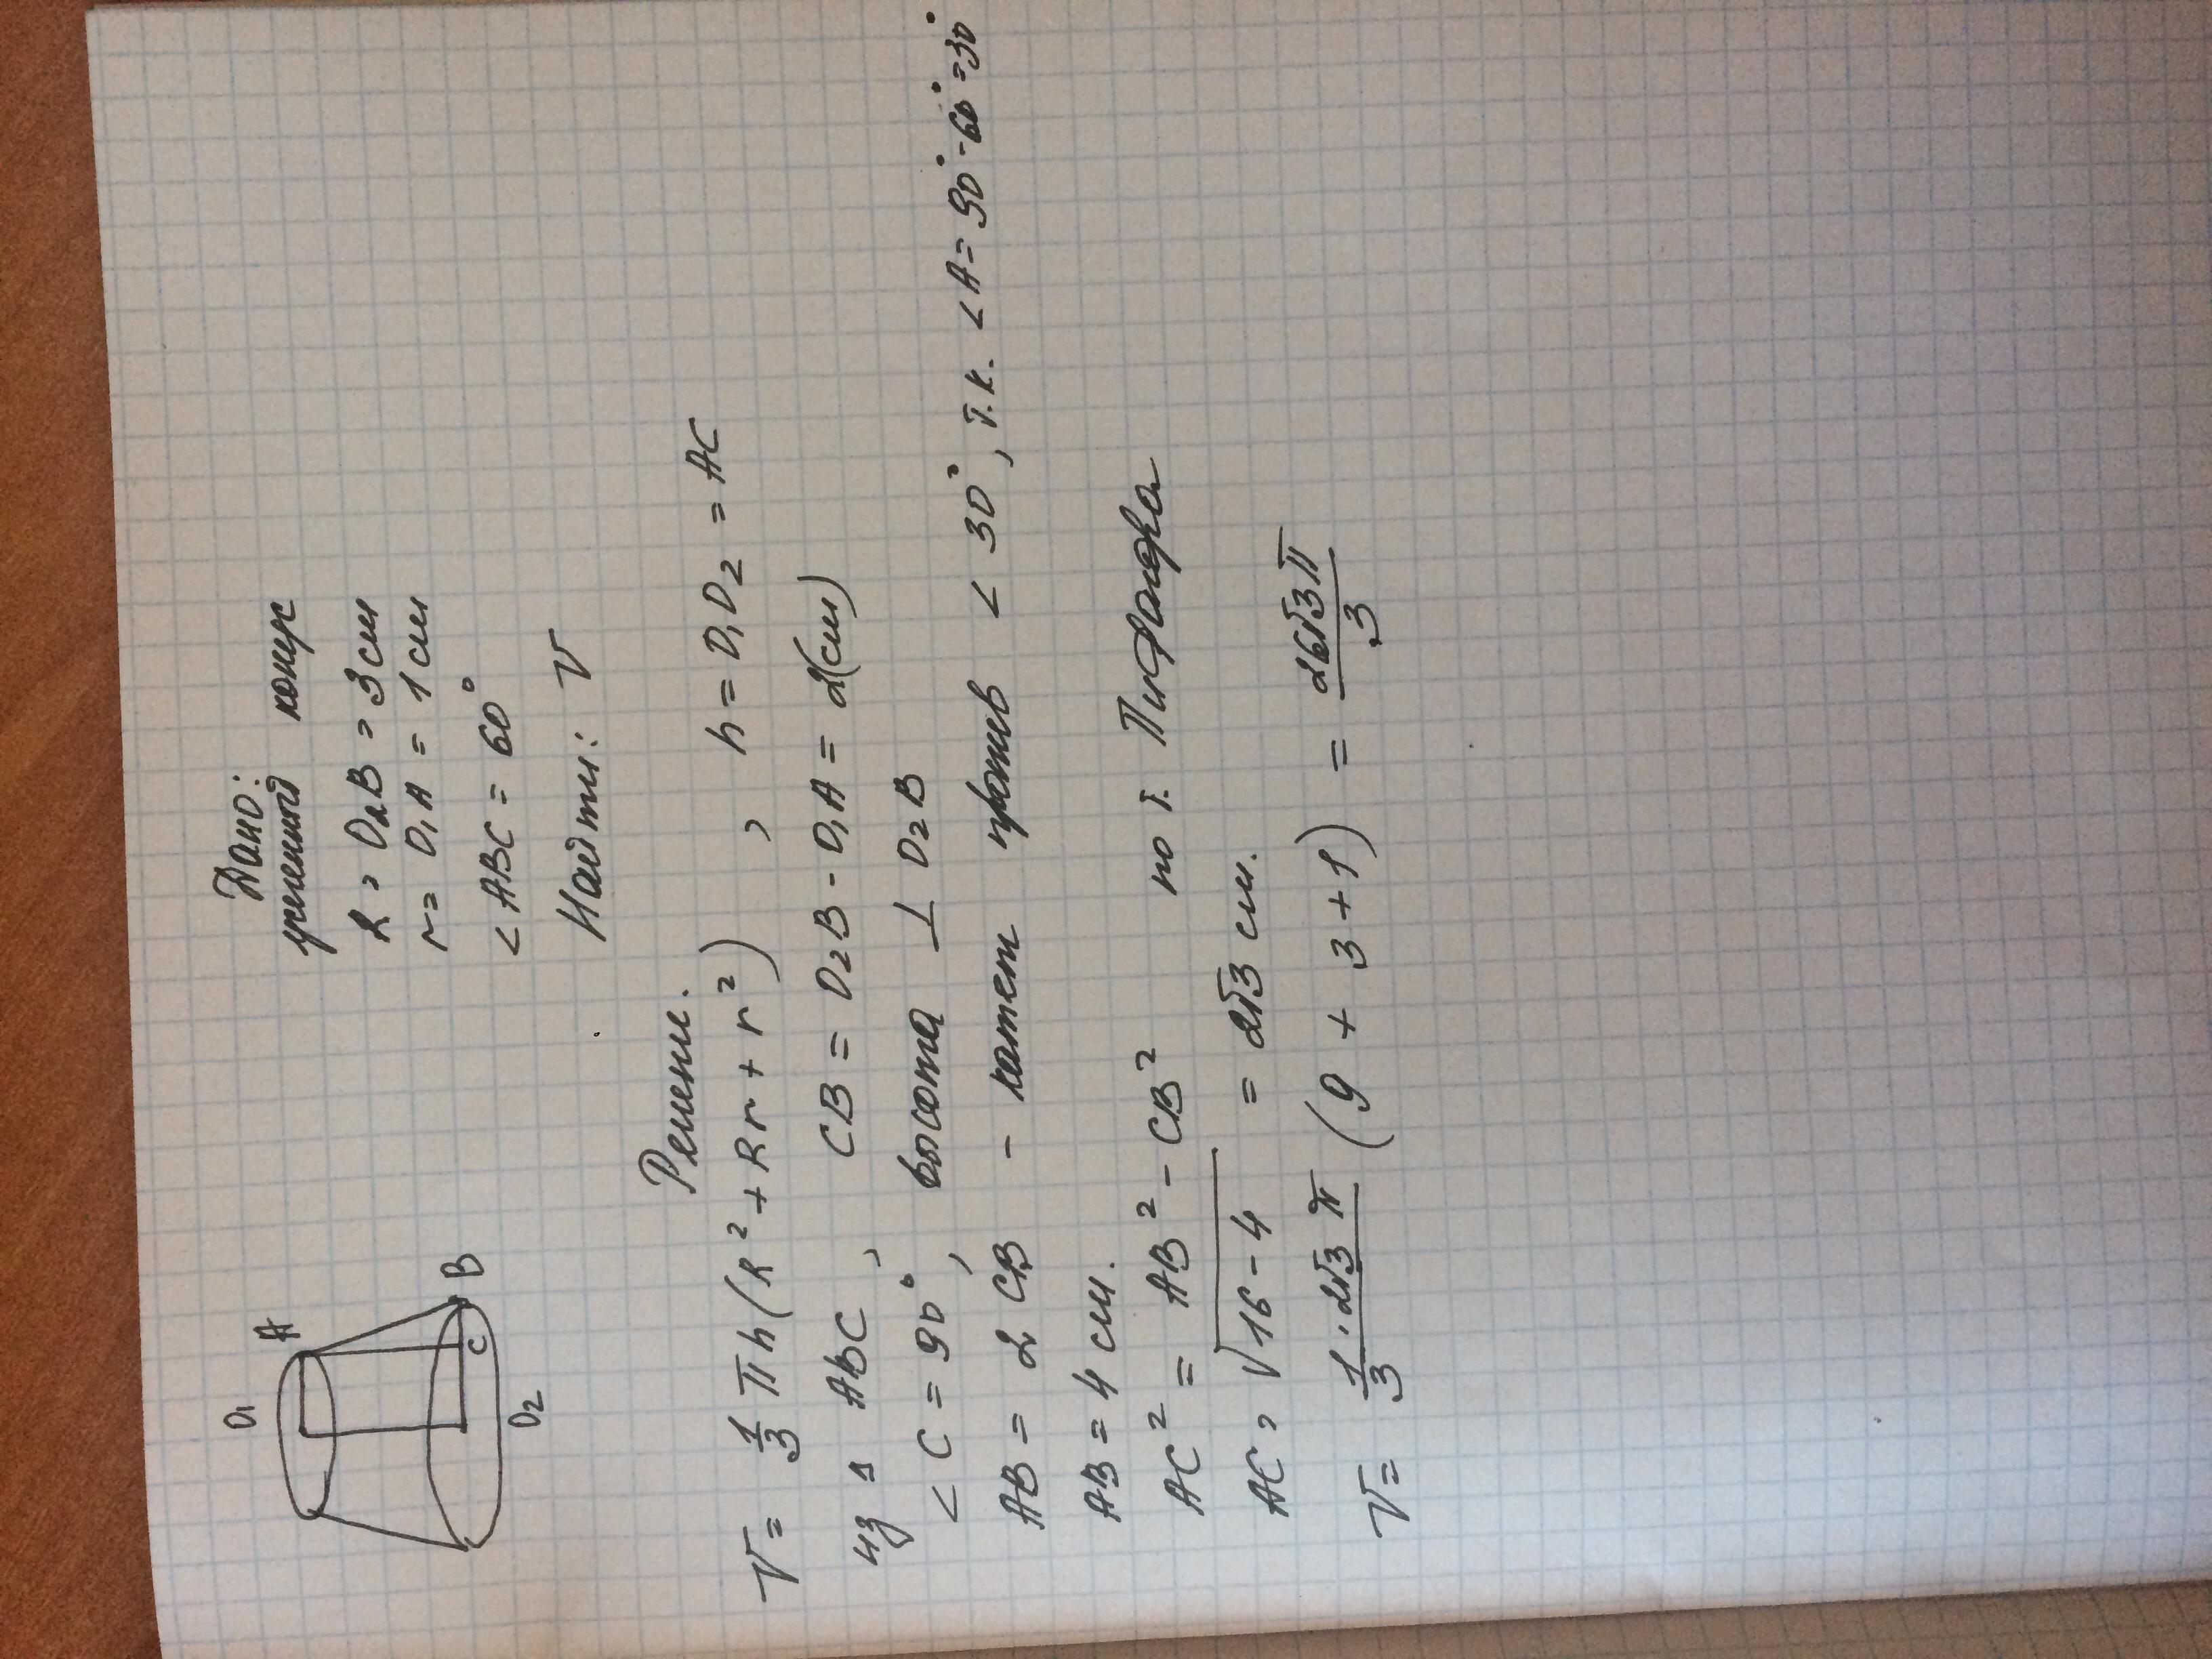 Дано:
усеченный конус
R = O₂B = 3 см
r = O₁A = 1 см
∠ABC = 60°
Найти: V
O₁
A
B
C
O₂
Решение.
V = 1/3 πh(R² + Rr + r²), h = O₁O₂ = AC
из Δ ABC, CB = O₂B - O₁A = 2(см)
∠C = 90°, высота ⊥ O₂B
AB = 2 CB - катет против ∠ 30°, т.к. ∠A = 90° - 60° = 30°
AB = 4 см.
AC² = AB² - CB² по т. Пифагора
AC = √16 - 4 = 2√3 см.
V = 1/3 · 2√3 π (9 + 3 + 1) = 26√3π/3